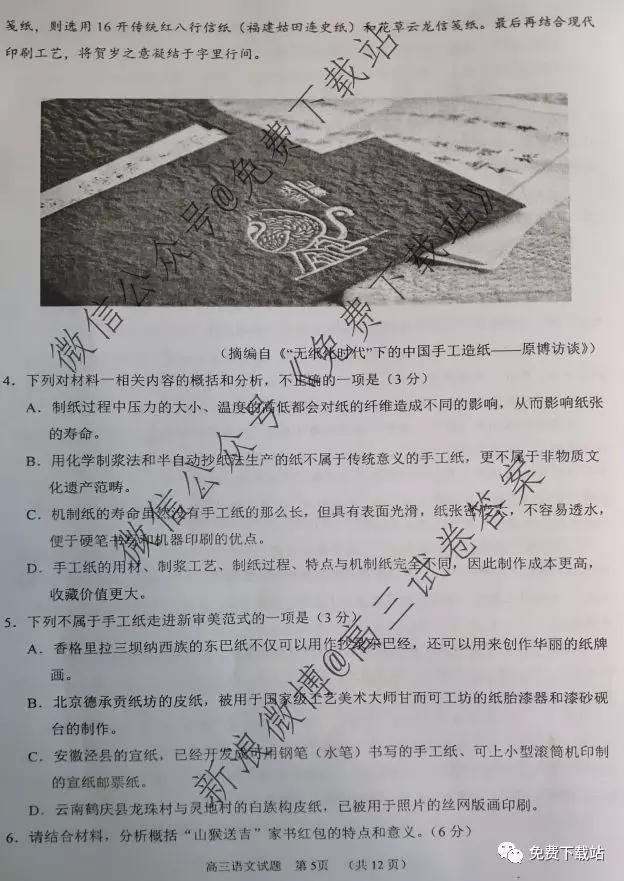 笺纸，则选用 16 开传统红八行信纸（福建姑田连史纸）和花草云龙信笺纸。最后再结合现代
印刷工艺，将贺岁之意凝结于字里行间。
（摘编自《“无纸化时代”下的中国手工造纸——原博访谈》）
4．下列对材料一相关内容的概括和分析，不正确的一项是（3 分）
A．制纸过程中压力的大小、温度的高低都会对纸的纤维造成不同的影响，从而影响纸张
的寿命。
B．用化学制浆法和半自动抄纸法生产的纸不属于传统意义的手工纸，更不属于非物质文
化遗产范畴。
C．机制纸的寿命虽然没有手工纸的那么长，但具有表面光滑，纸张密度大，不容易透水，
便于硬笔书写和机器印刷的优点。
D．手工纸的用材、制浆工艺、制纸过程、特点与机制纸完全不同，因此制作成本更高，
收藏价值更大。
5．下列不属于手工纸走进新审美范式的一项是（3 分）
A．香格里拉三坝纳西族的东巴纸不仅可以用作抄录东巴经，还可以用来创作华丽的纸牌
画。
B．北京德承贡纸坊的皮纸，被用于国家级工艺美术大师甘而可工坊的纸胎漆器和漆砂砚
台的制作。
C．安徽泾县的宣纸，已经开发成可用钢笔（水笔）书写的手工纸、可上小型滚筒机印制
的宣纸邮票纸。
D．云南鹤庆县龙珠村与灵地村的白族构皮纸，已被用于照片的丝网版画印刷。
6．请结合材料，分析概括“山猴送吉”家书红包的特点和意义。（6 分）
高三语文试题 第 5页 （共 12 页）
微信公众号@免费下载站
微信公众号《免费下载站》
新浪微博@高三试卷答案
免费下载站